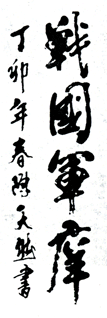 戰國軍群
丁卯年春陈天然書